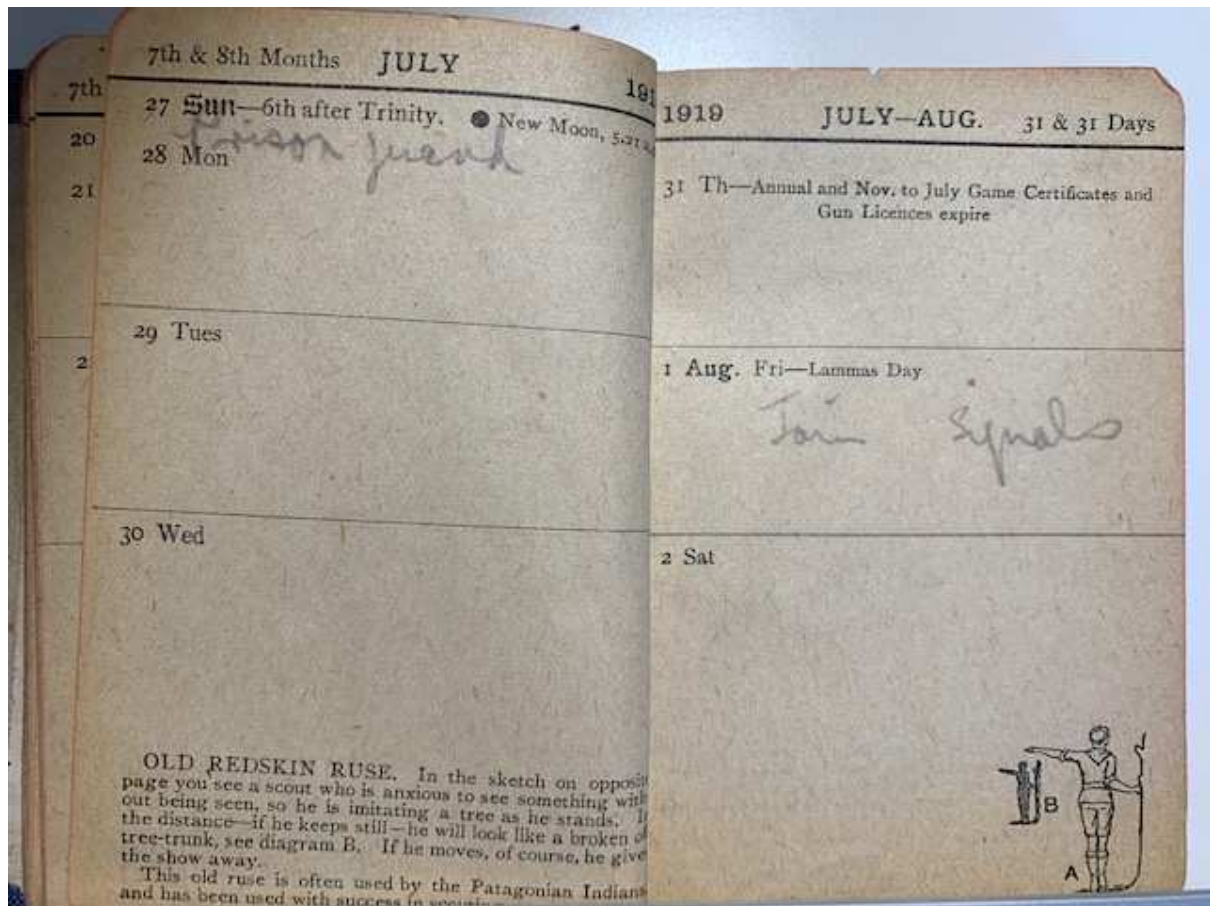 7th
20
21
2
7th & 8th Months JULY 191
27 Sun—6th after Trinity. ● New Moon, 5.21
Prison guard
28 Mon
29 Tues
30 Wed
OLD REDSKIN RUSE. In the sketch on opposit
page you see a scout who is anxious to see something with
out being seen, so he is imitating a tree as he stands. I
the distance—if he keeps still—he will look like a broken o
tree-trunk, see diagram B. If he moves, of course, he give
the show away.
This old ruse is often used by the Patagonian Indians
and has been used with success in
1919 JULY—AUG. 31 & 31 Days
31 Th—Annual and Nov. to July Game Certificates and
Gun Licences expire
1 Aug. Fri—Lammas Day
Join Signals
2 Sat
B
A